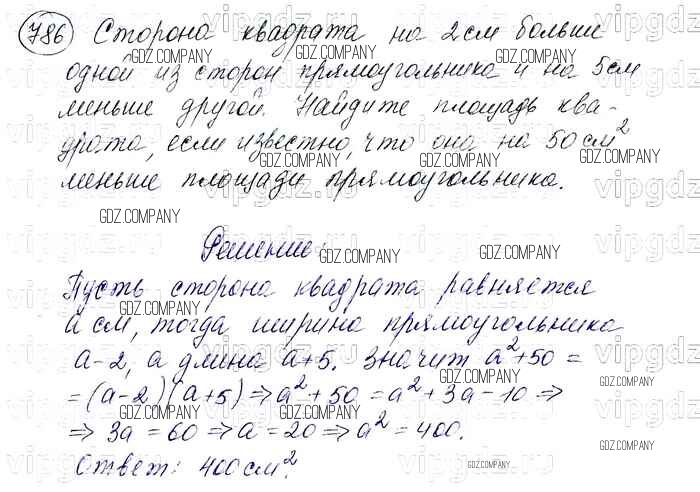 786 Сторона квадрата на 2 см больше
одной из сторон прямоугольника и на 5 см
меньше другой. Найдите площадь ква-
драта, если известно, что она на 50 см²
меньше площади прямоугольника.
Решение:
Пусть сторона квадрата равняется
а см, тогда ширина прямоугольника
а-2, а длина а+5. Значит а²+50 =
= (а-2)(а+5) ⇒ а² + 50 = а² + 3а - 10 ⇒
⇒ 3а = 60 ⇒ а = 20 ⇒ а² = 400.
Ответ: 400 см².